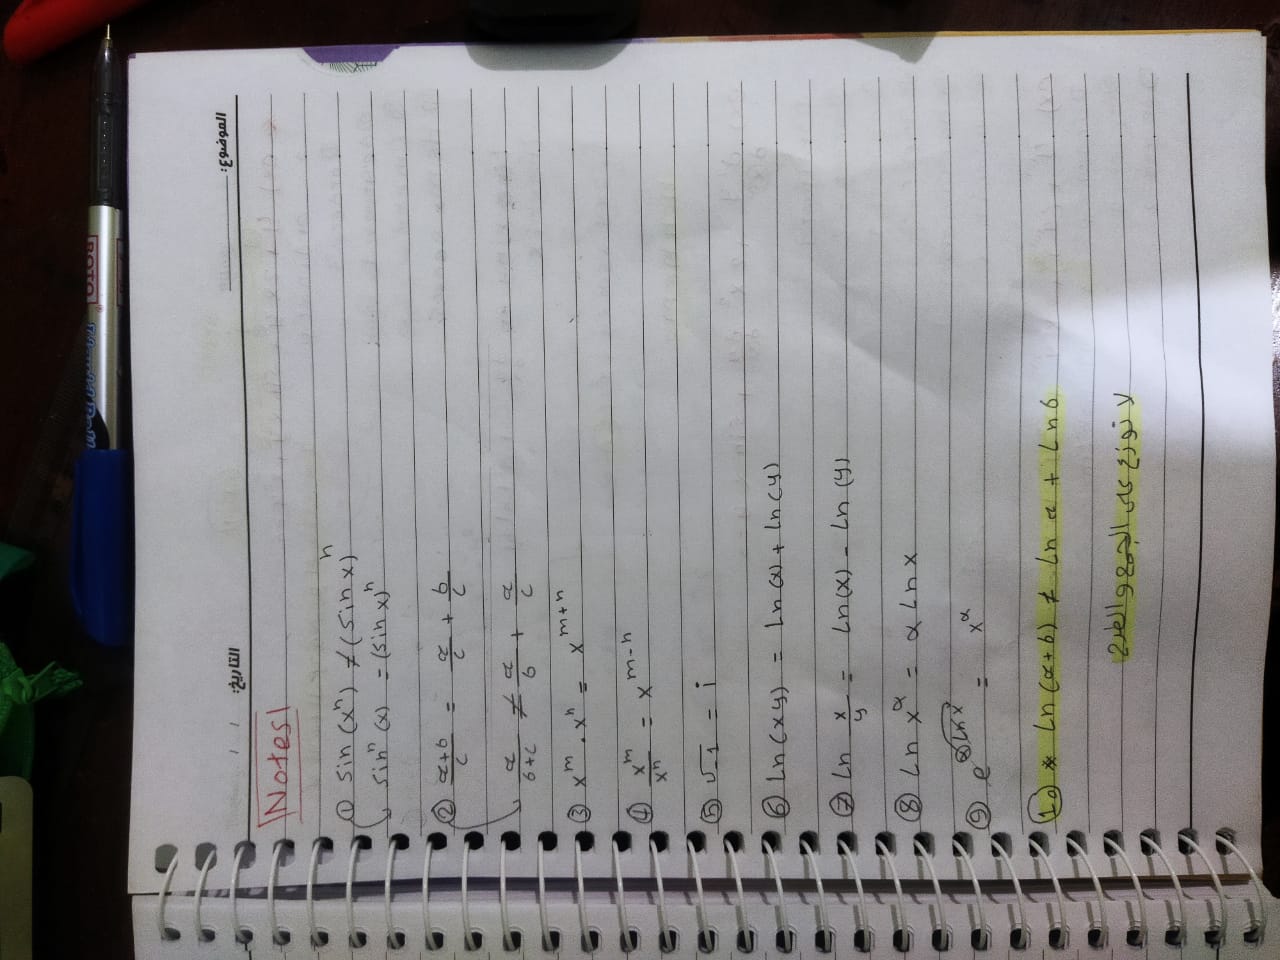 الموضوع: التاريخ: / /
Notes
① sin(xⁿ) ≠ (sin x)ⁿ
sinⁿ(x) = (sin x)ⁿ
② (a+b)/c = a/c + b/c
a/(b+c) ≠ a/b + a/c
③ x^m . x^n = x^(m+n)
④ x^m/x^n = x^(m-n)
⑤ √-1 = i
⑥ Ln(xy) = Ln(x) + Ln(y)
⑦ Ln x/y = Ln(x) - Ln(y)
⑧ Ln x^α = α Ln x
⑨ e^(α Ln x) = x^α
⑩ * Ln(a+b) ≠ Ln a + Ln b
لا توزع على الجمع والطرح